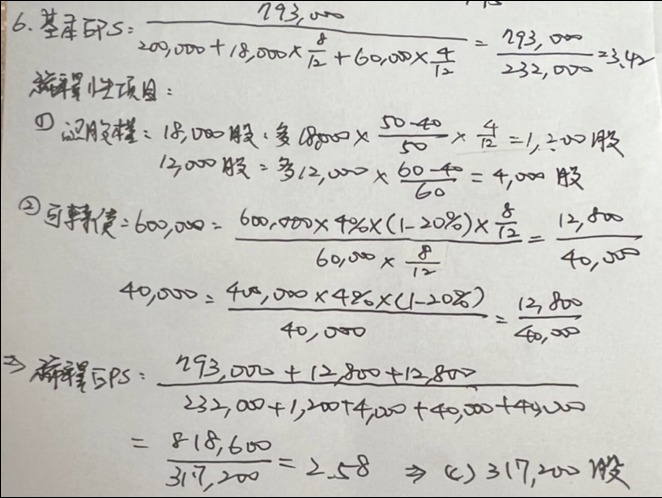 6. 基本EPS: 793,000 / (200,000 + 18,000 × 8/12 + 60,000 × 4/12) = 793,000 / 232,000 = 3.42
稀釋性項目:
① 認股權: 18,000股: 多18,000 × (50-40)/50 × 4/12 = 1,200股
12,000股: 多12,000 × (60-40)/60 = 4,000股
② 可轉債: 600,000 = (600,000 × 4% × (1-20%) × 8/12) / (60,000 × 8/12) = 12,800 / 40,000
40,000 = (400,000 × 4% × (1-20%)) / 40,000 = 12,800 / 40,000
⇒ 稀釋EPS: (793,000 + 12,800 + 12,800) / (232,000 + 1,200 + 4,000 + 40,000 + 40,000)
= 818,600 / 317,200 = 2.58 ⇒ (c) 317,200股